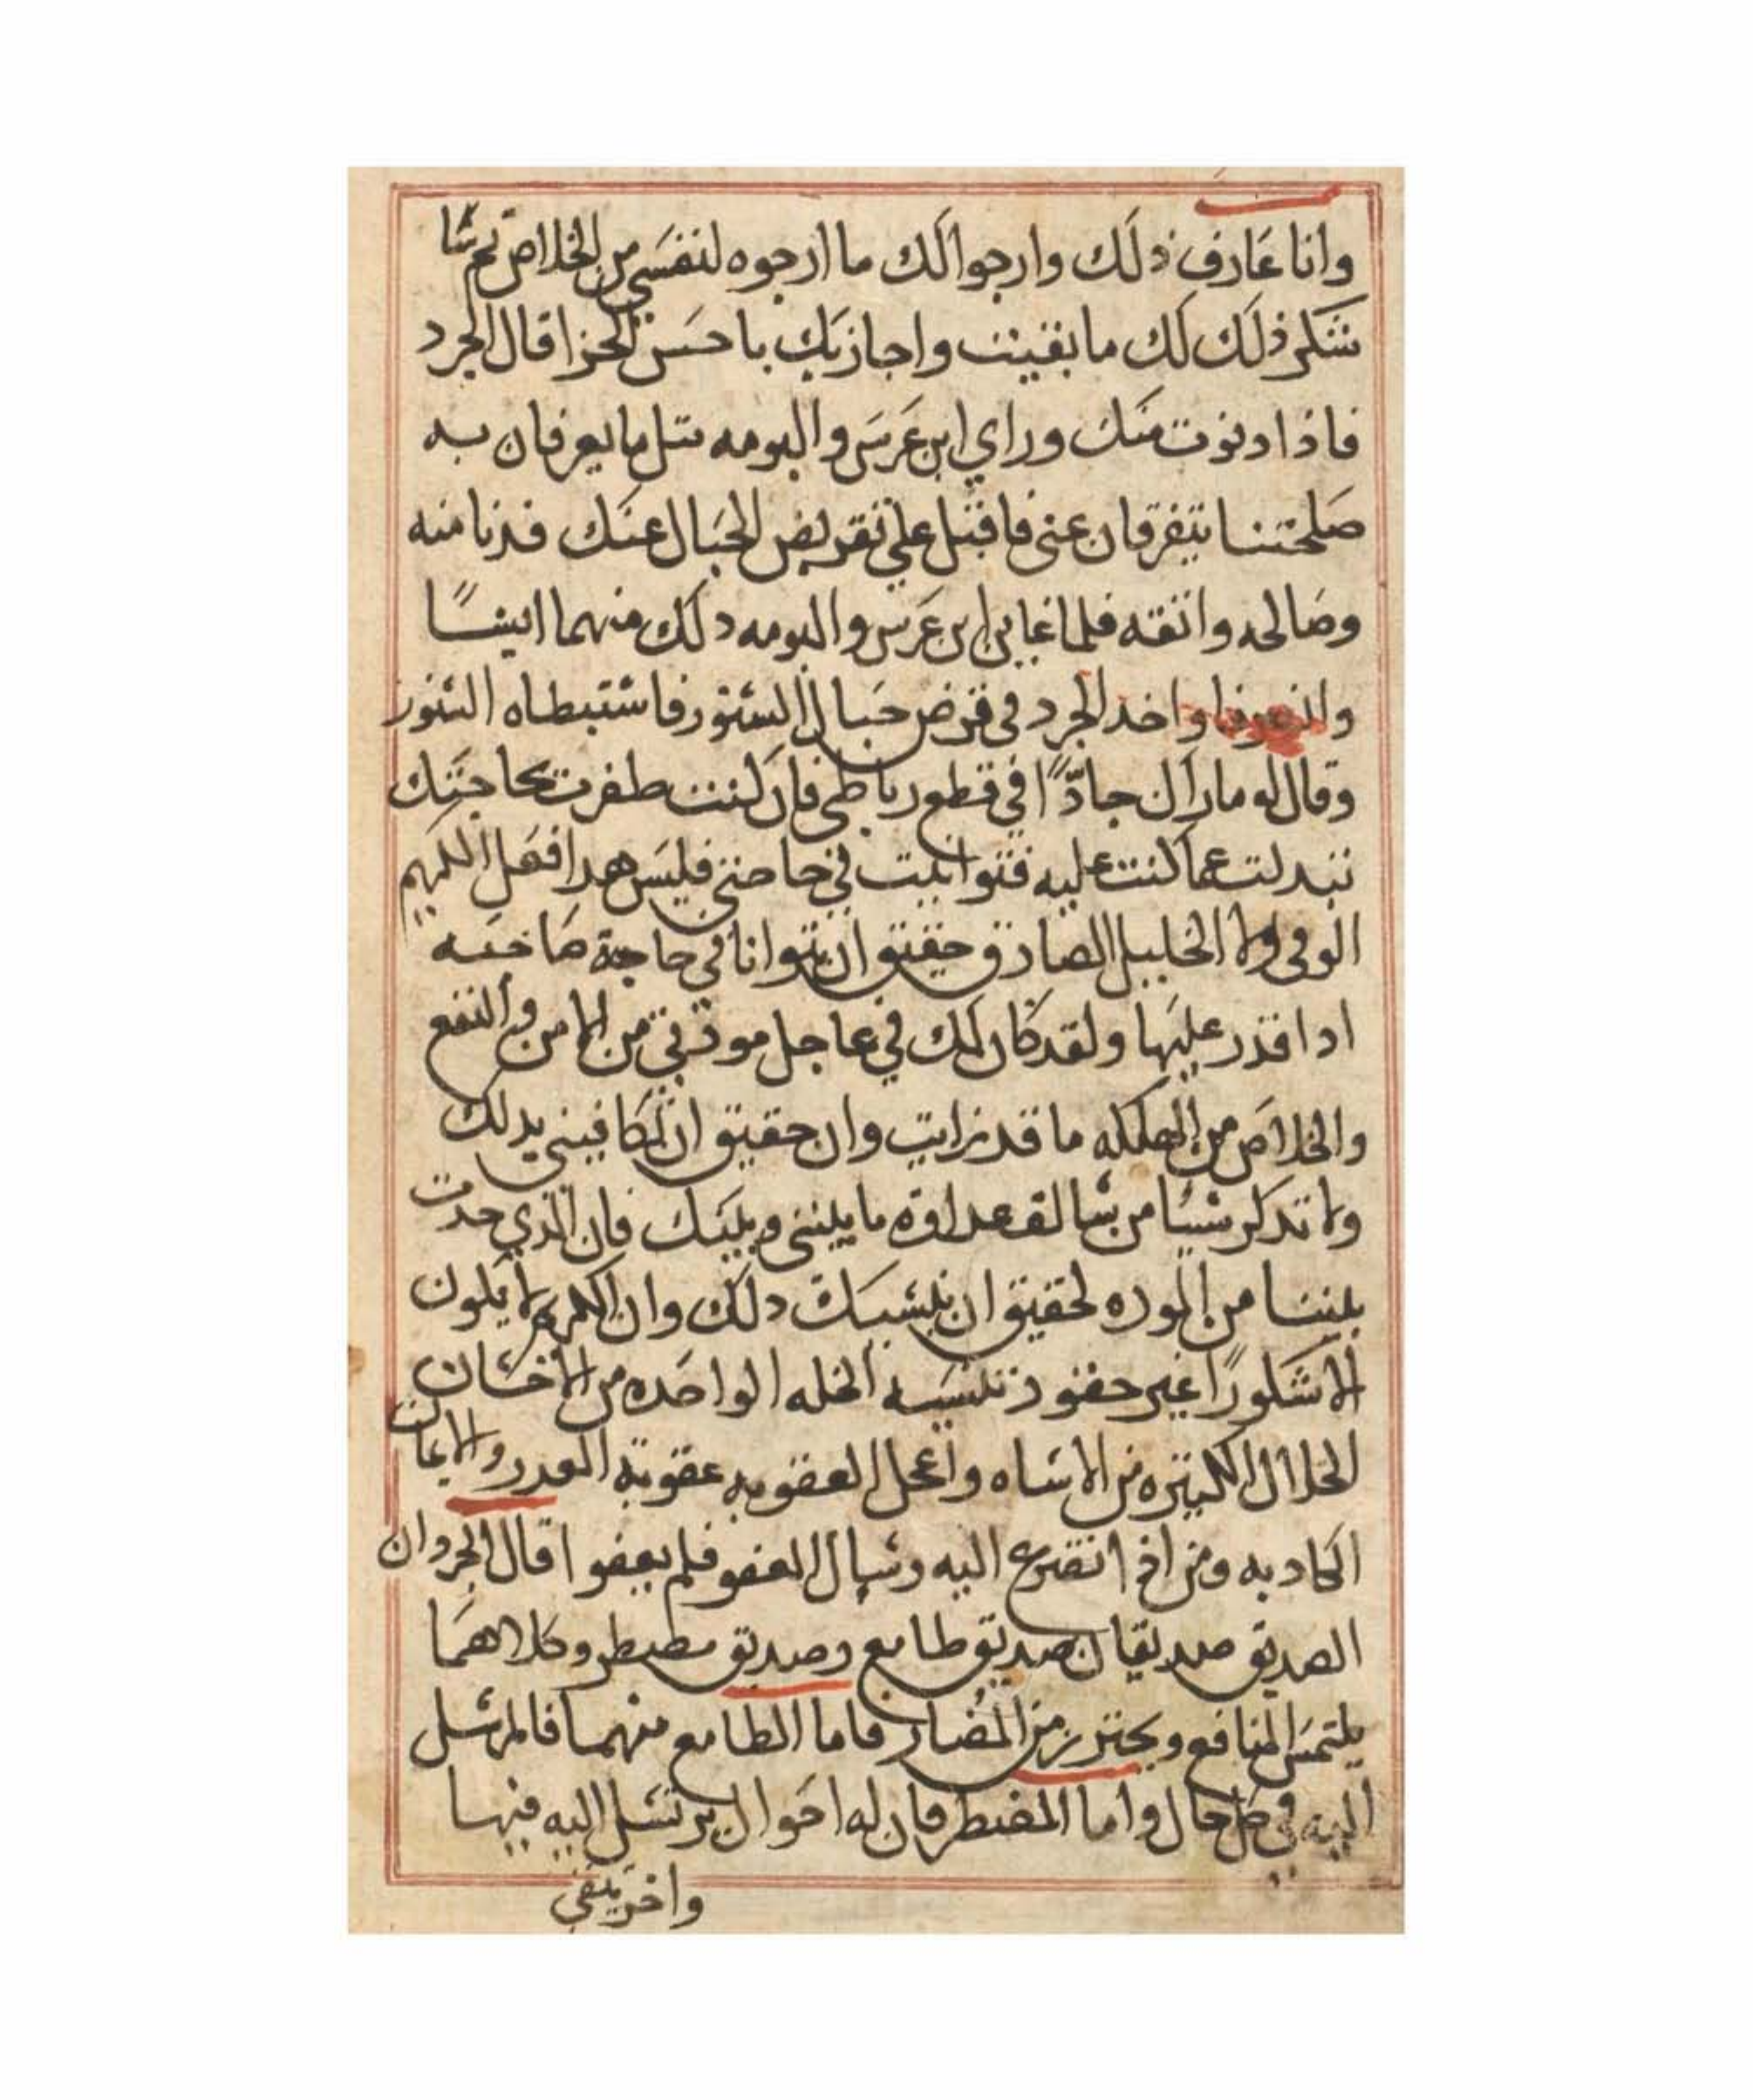 وانا عارف ذلك وارجوا لك ما ارجوه لنفسي من الخلاص ثم سا
شكر ذلك لك ما بقيت واجازيك باحسن الجزا قال الجرد
فاذا دنوت منك وراي ابن عرس والبومه متل ما يعرفان به
صلحتنا يتفرقان عني فاقبل علي تقريض الحبال عنك فدنا منه
وصالحه واتقه فلما عاين ابن عرس والبومه دلك منهما ايسا
وانصرفا واخد الجرد في قرض حبال السنور فاستبطاه السنور
وقال له ماراك جادًا في قطع رباطي فان كنت طفرت بحاجتك
تبدلت عما كنت عليه فتوانيت في حاجتي فليس هدا فعل الكريم
الوفي ولا الخليل الصادق حقيق ان يتوانا في حاجة صاحبه
ادا قدر عليها ولقد كان لك في عاجل مودتي من الامن والنفع
والخلاص من الهلكه ما قد رايت وان حقيق ان تكافيني بدلك
ولا تدكر شيئا من سالف عداوة ما بيني وبينك فان الذي حدت
بيننا من الموده لحقيق ان ينسيك دلك وان الكريم لا يكون
الا شكورًا غير حقود تنسيه الخله الواحده من الاحسان
الخلال الكتيره من الاساه واعجل العقوبه عقوبة الغدر والايمان
الكادبه ومن اذا تضرع اليه وسال العفو فلم يعفوا قال الجرد ان
الصديق صديقان صديق طامع وصديق مضطر وكلاهما
يلتمس المنافع ويحترز من المضار فاما الطامع منهما فالمرسل
اليه في كل حال واما المضطر فان له احوال يرتسل اليه فيها
واخر يتقي